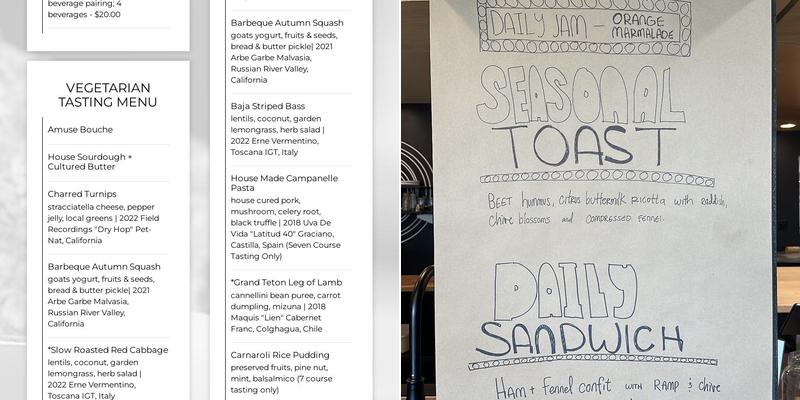 beverage pairing; 4
beverages - $20.00
VEGETARIAN
TASTING MENU
Amuse Bouche
House Sourdough +
Cultured Butter
Charred Turnips
stracciatella cheese, pepper
jelly, local greens | 2022 Field
Recordings "Dry Hop" Pet-
Nat, California
Barbeque Autumn Squash
goats yogurt, fruits & seeds,
bread & butter pickle| 2021
Arbe Garbe Malvasia,
Russian River Valley,
California
*Slow Roasted Red Cabbage
lentils, coconut, garden
lemongrass, herb salad |
2022 Erne Vermentino,
Toscana IGT, Italy
Barbeque Autumn Squash
goats yogurt, fruits & seeds,
bread & butter pickle| 2021
Arbe Garbe Malvasia,
Russian River Valley,
California
Baja Striped Bass
lentils, coconut, garden
lemongrass, herb salad |
2022 Erne Vermentino,
Toscana IGT, Italy
House Made Campanelle
Pasta
house cured pork,
mushroom, celery root,
black truffle | 2018 Uva De
Vida "Latitud 40" Graciano,
Castilla, Spain (Seven Course
Tasting Only)
*Grand Teton Leg of Lamb
cannellini bean puree, carrot
dumpling, mizuna | 2018
Maquis "Lien" Cabernet
Franc, Colghagua, Chile
Carnaroli Rice Pudding
preserved fruits, pine nut,
mint, balsalmico (7 course
tasting only)
DAILY JAM - ORANGE
MARMALADE
SEASONAL
TOAST
BEET hummus, citrus buttermilk ricotta with radish,
Chive blossoms and COMPRESSED FENNEL.
DAILY
SANDWICH
HAM + Fennel confit WITH RAMP & chive